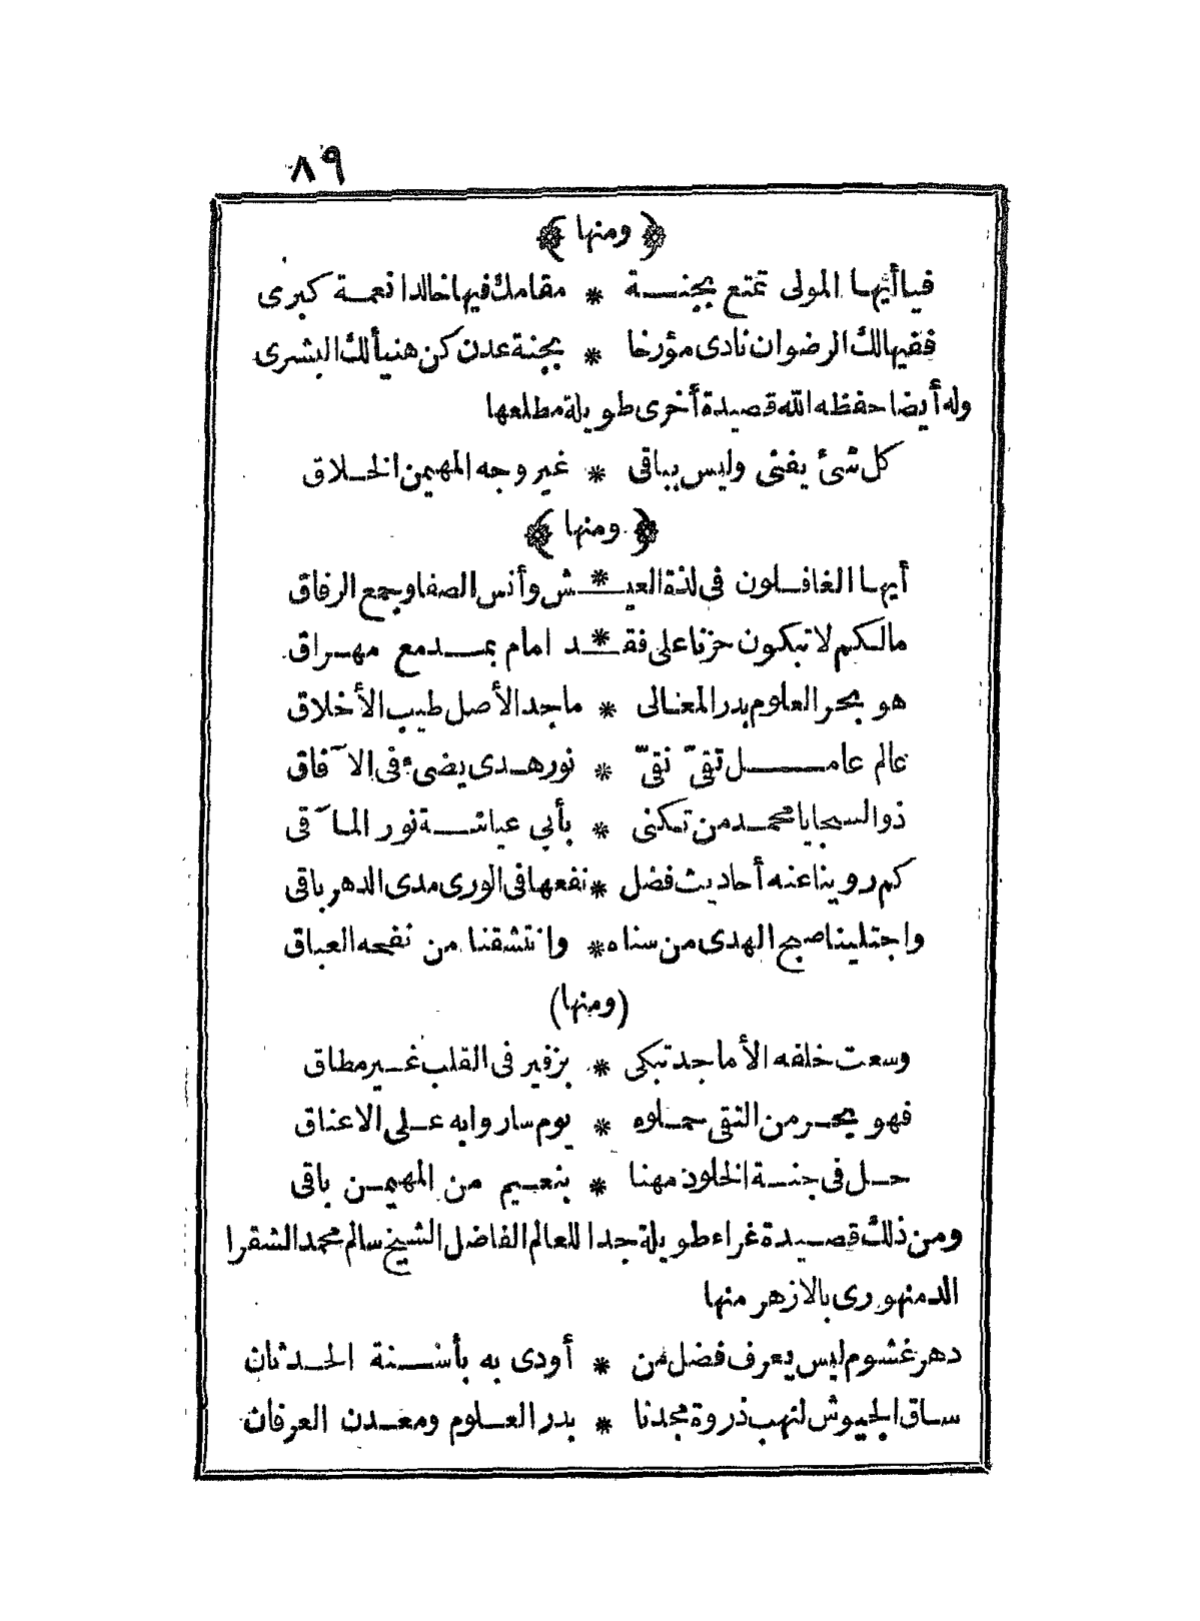 ٨٩
﴿ ومنها ﴾
فياأيها المولى تمتع بجنة * مقامك فيها خالدا نعمة كبرى
ففيهالك الرضوان نادى مؤرخا * بجنة عدن كن هنيأ لك البشرى
وله أيضا حفظه الله قصيدة أخرى طويلة مطلعها
كل شئ يفنى وليس بباقى * غير وجه المهيمن الخلاق
﴿ ومنها ﴾
أيها الغافلون فى لذة العيـ * ـش وأنس الصفا وجمع الرفاق
مالكم لا تبكون حزنا على فقـ * ـد امام بمدمع مهراق
هو بحر العلوم بدر المعالى * ماجد الأصل طيب الأخلاق
عالم عامل تقىّ نقىّ * نور هدى يضىء فى الآفاق
ذو السجايا محمد من تكنى * بأبي عياشة نور المآقى
كم روينا عنه أحاديث فضل * نفعها فى الورى مدى الدهر باقى
واجتلينا صبح الهدى من سناه * وانتشقنا من نفحه العباق
(ومنها)
وسعت خلفه الأماجد تبكى * بزفير فى القلب غير مطاق
فهو بحر من التقى حملوه * يوم ساروا به على الاعناق
حل فى جنة الخلود مهنا * بنعيم من المهيمن باقى
ومن ذلك قصيدة غراء طويلة جدا للعالم الفاضل الشيخ سالم محمد الشقرا
الدمنهورى بالازهر منها
دهر غشوم ليس يعرف فضل من * أودى به بأسنة الحدثان
ساق الجيوش لنهب ذروة مجدنا * بدر العلوم ومعدن العرفان